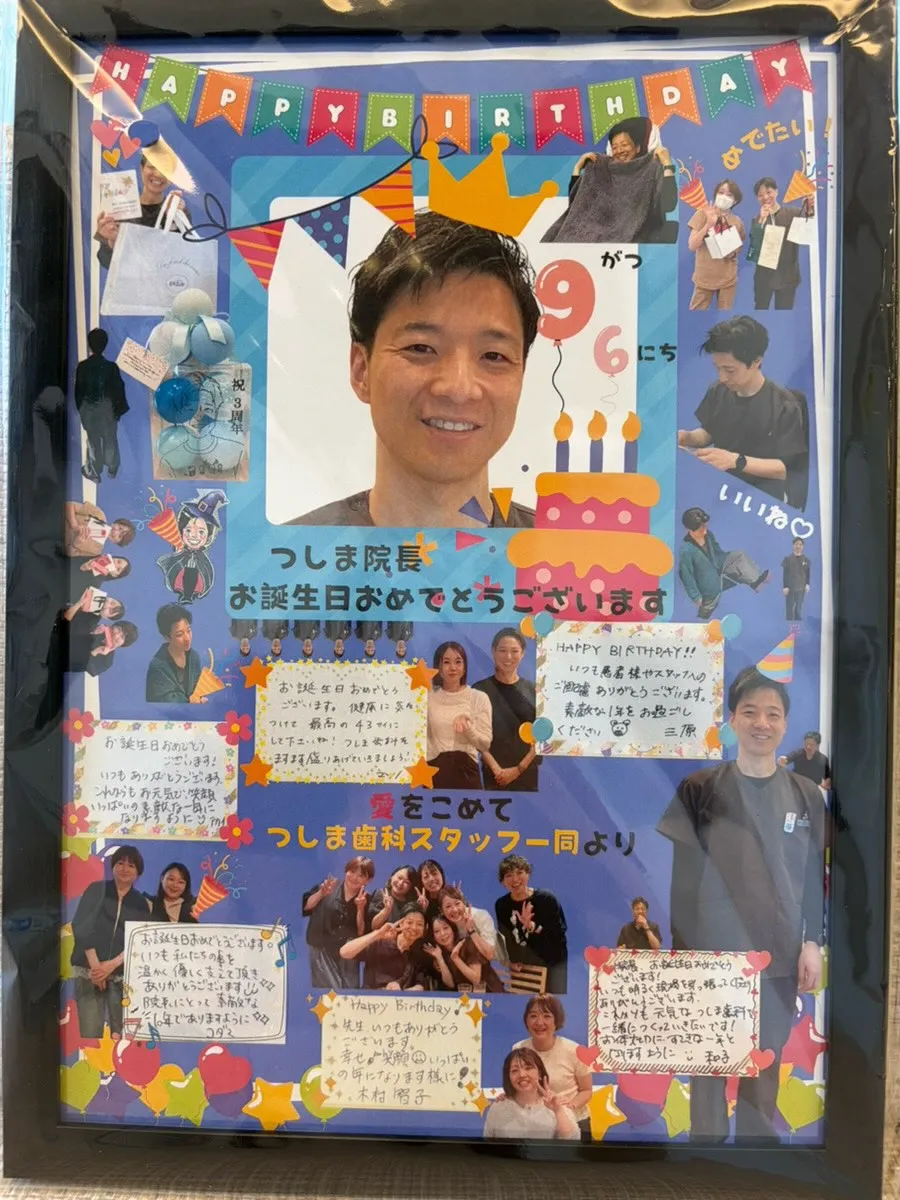 HAPPY BIRTHDAY
めでたい!
9
がつ
6
にち
祝3周年
いいね♡
つしま院長
お誕生日おめでとうございます
お誕生日おめでとう
ございます。健康に気を
つけて 最高の43才に
して下さいね! つしま歯科を
ますます盛りあげていきましょう
HAPPY BIRTHDAY!!
いつも患者様やスタッフへの
ご配慮ありがとうございます。
素敵な1年をお過ごし
ください
三原
お誕生日おめでとう
ございます!
いつもありがとうございます。
これからもお元気で、笑顔
いっぱいの素敵な一年に
なりますように
愛をこめて
つしま歯科スタッフ一同より
お誕生日おめでとうございます。
いつも私たちの事を
温かく優しく支えて頂き
ありがとうございます
院長にとって素敵な
1年でありますように
コダマ
Happy Birthday
先生、いつもありがとう
ございます。
幸せ 笑顔 いっぱい
の年になります様に
木村
お誕生日おめでとう
ございます!
いつも明るく
ありがとうございます。
これからも 元気な つしま歯科を
一緒につくっていきたいです!
すてきな一年と
なりますように
和子